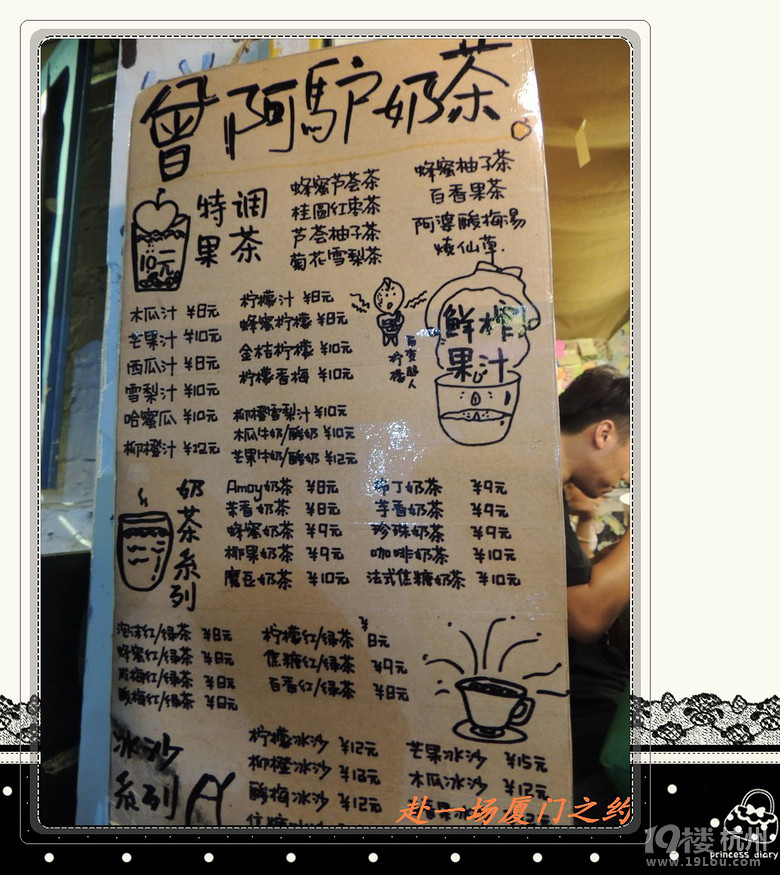 曾阿驴奶茶
特调
果茶
10元
蜂蜜芦荟茶
桂圆红枣茶
芦荟柚子茶
菊花雪梨茶
蜂蜜柚子茶
百香果茶
阿婆酸梅湯
烧仙草.
鲜榨
果汁
木瓜汁 ¥8元
芒果汁 ¥10元
西瓜汁 ¥8元
雪梨汁 ¥10元
哈蜜瓜 ¥10元
柳橙汁 ¥12元
柠檬汁 ¥8元
蜂蜜柠檬 ¥8元
金桔柠檬 ¥10元
柠檬香梅 ¥10元
柳橙雪梨汁 ¥10元
木瓜牛奶/酸奶 ¥10元
芒果牛奶/酸奶 ¥12元
奶茶系列
Amoy奶茶 ¥8元
茉香奶茶 ¥8元
蜂蜜奶茶 ¥9元
椰果奶茶 ¥9元
魔豆奶茶 ¥10元
布丁奶茶 ¥9元
芋香奶茶 ¥9元
珍珠奶茶 ¥9元
咖啡奶茶 ¥10元
法式焦糖奶茶 ¥10元
泡沫红/绿茶 ¥8元
蜂蜜红/绿茶 ¥8元
红/绿茶 ¥8元
酸梅红/绿茶 ¥8元
柠檬红/绿茶 ¥8元
焦糖红/绿茶 ¥9元
百香红/绿茶 ¥8元
冰沙
系列
柠檬冰沙 ¥12元
柳橙冰沙 ¥13元
酸梅冰沙 ¥12元
芒果冰沙 ¥15元
木瓜冰沙 ¥12元
赴一场厦门之约
19楼杭州
www.19Lou.com
princess diary